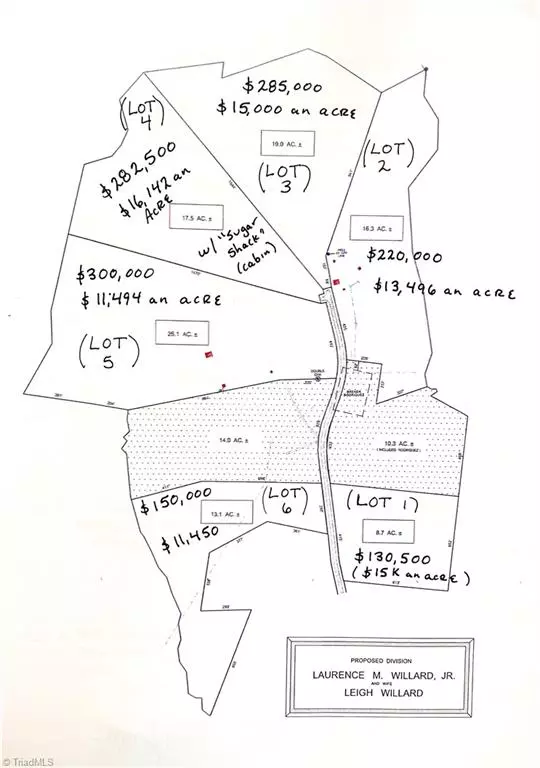 $285,000
$15,000 an ACRE
19.0 AC. ±
(LOT)
3
(LOT)
4
$282,500
$16,142 an
ACRE
17.5 AC. ±
w/ "Sugar
Shack"
(cabin)
(LOT)
2
16.3 AC. ±
$220,000
$13,496 an ACRE
$300,000
$11,494 an ACRE
(LOT)
5
DOUBLE
OAK
14.0 AC. ±
10.3 AC. ±
(INCLUDES RODRIGUEZ)
RODRIGUEZ
$150,000
13.1 AC. ±
$11,450
(LOT)
6
(LOT 1)
8.7 AC. ±
$130,500
($15K an acre)
PROPOSED DIVISION
LAURENCE M. WILLARD, JR.
AND WIFE
LEIGH WILLARD
© TriadMLS